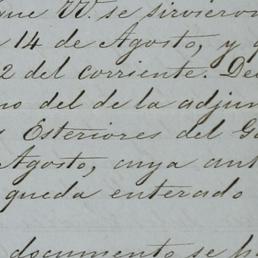 que VV. se sirviero
14 de Agosto, y
2 del corriente. De
no del de la adjun
Esteriores del G
Agosto, cuya ant
queda enterado
documento se